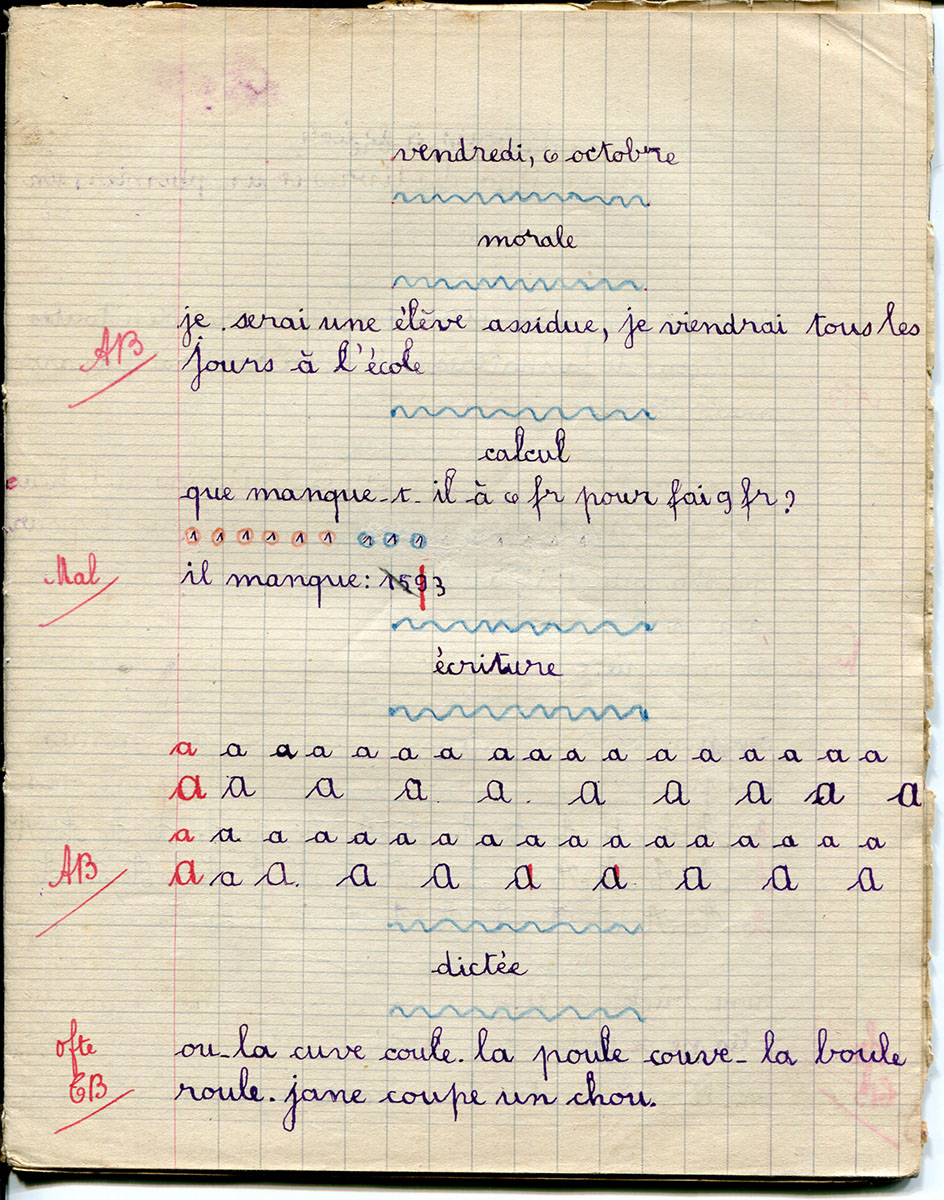 vendredi, 6 octobre
morale
je serai une élève assidue, je viendrai tous les
AB
jours à l'école
calcul
que manque-t-il à 6 fr pour fai 9 fr?
1 1 1 1 1 1 1 1 1
Mal
il manque: 1593
écriture
a a a a a a a a a a a a a a a a a
a a a a a a a a a a
a a a a a a a a a a a a a a a a a
AB
a a a a a a a a a a
dictée
ofte
ou-la cuve coule. la poule couve- la boule
TB
roule. jane coupe un chou.